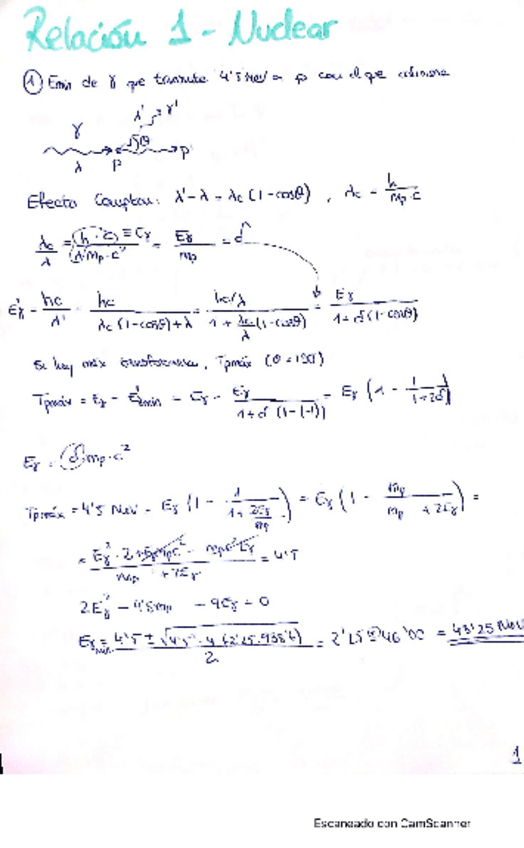 Relación 1 - Nuclear
① Emin de γ que transmite 4'5 MeV a p con el que colisiona
λ' γ'
γ θ
λ p p
Efecto Compton: λ'-λ = λc (1-cosθ) , λc = h/mp·c
λc/λ = (h·c) ≡ Eγ/(λ·mp·c²) = Eγ/mp = δ
E'γ = hc/λ' = hc/(λc(1-cosθ)+λ) = (hc/λ)/(1 + λc/λ (1-cosθ)) = Eγ/(1+δ(1-cosθ))
Si hay máx transferencia, Tpmáx (θ=180)
Tpmáx = Eγ - E'γmin = Eγ - Eγ/(1+δ(1-(-1))) = Eγ (1 - 1/(1+2δ))
Eγ = δ mp·c²
Tpmáx = 4'5 MeV = Eγ (1 - 1/(1+2Eγ/mp)) = Eγ (1 - mp/(mp + 2Eγ)) =
= (Eγ²·2 + Eγmpc² - mpc²Eγ)/(mp + 2Eγ) = 4'5
2Eγ² - 4'5mp - 9Eγ = 0
Eγmin = (4'5 ± √(4'5² + 4(2'25·938'6)))/2 = 2'25 ± 46'00 = 48'25 MeV
1
Escaneado con CamScanner